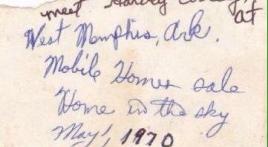 meet Harvey at
West Memphis, Ark.
Mobile Homes sale
Home in the sky
May, 1970